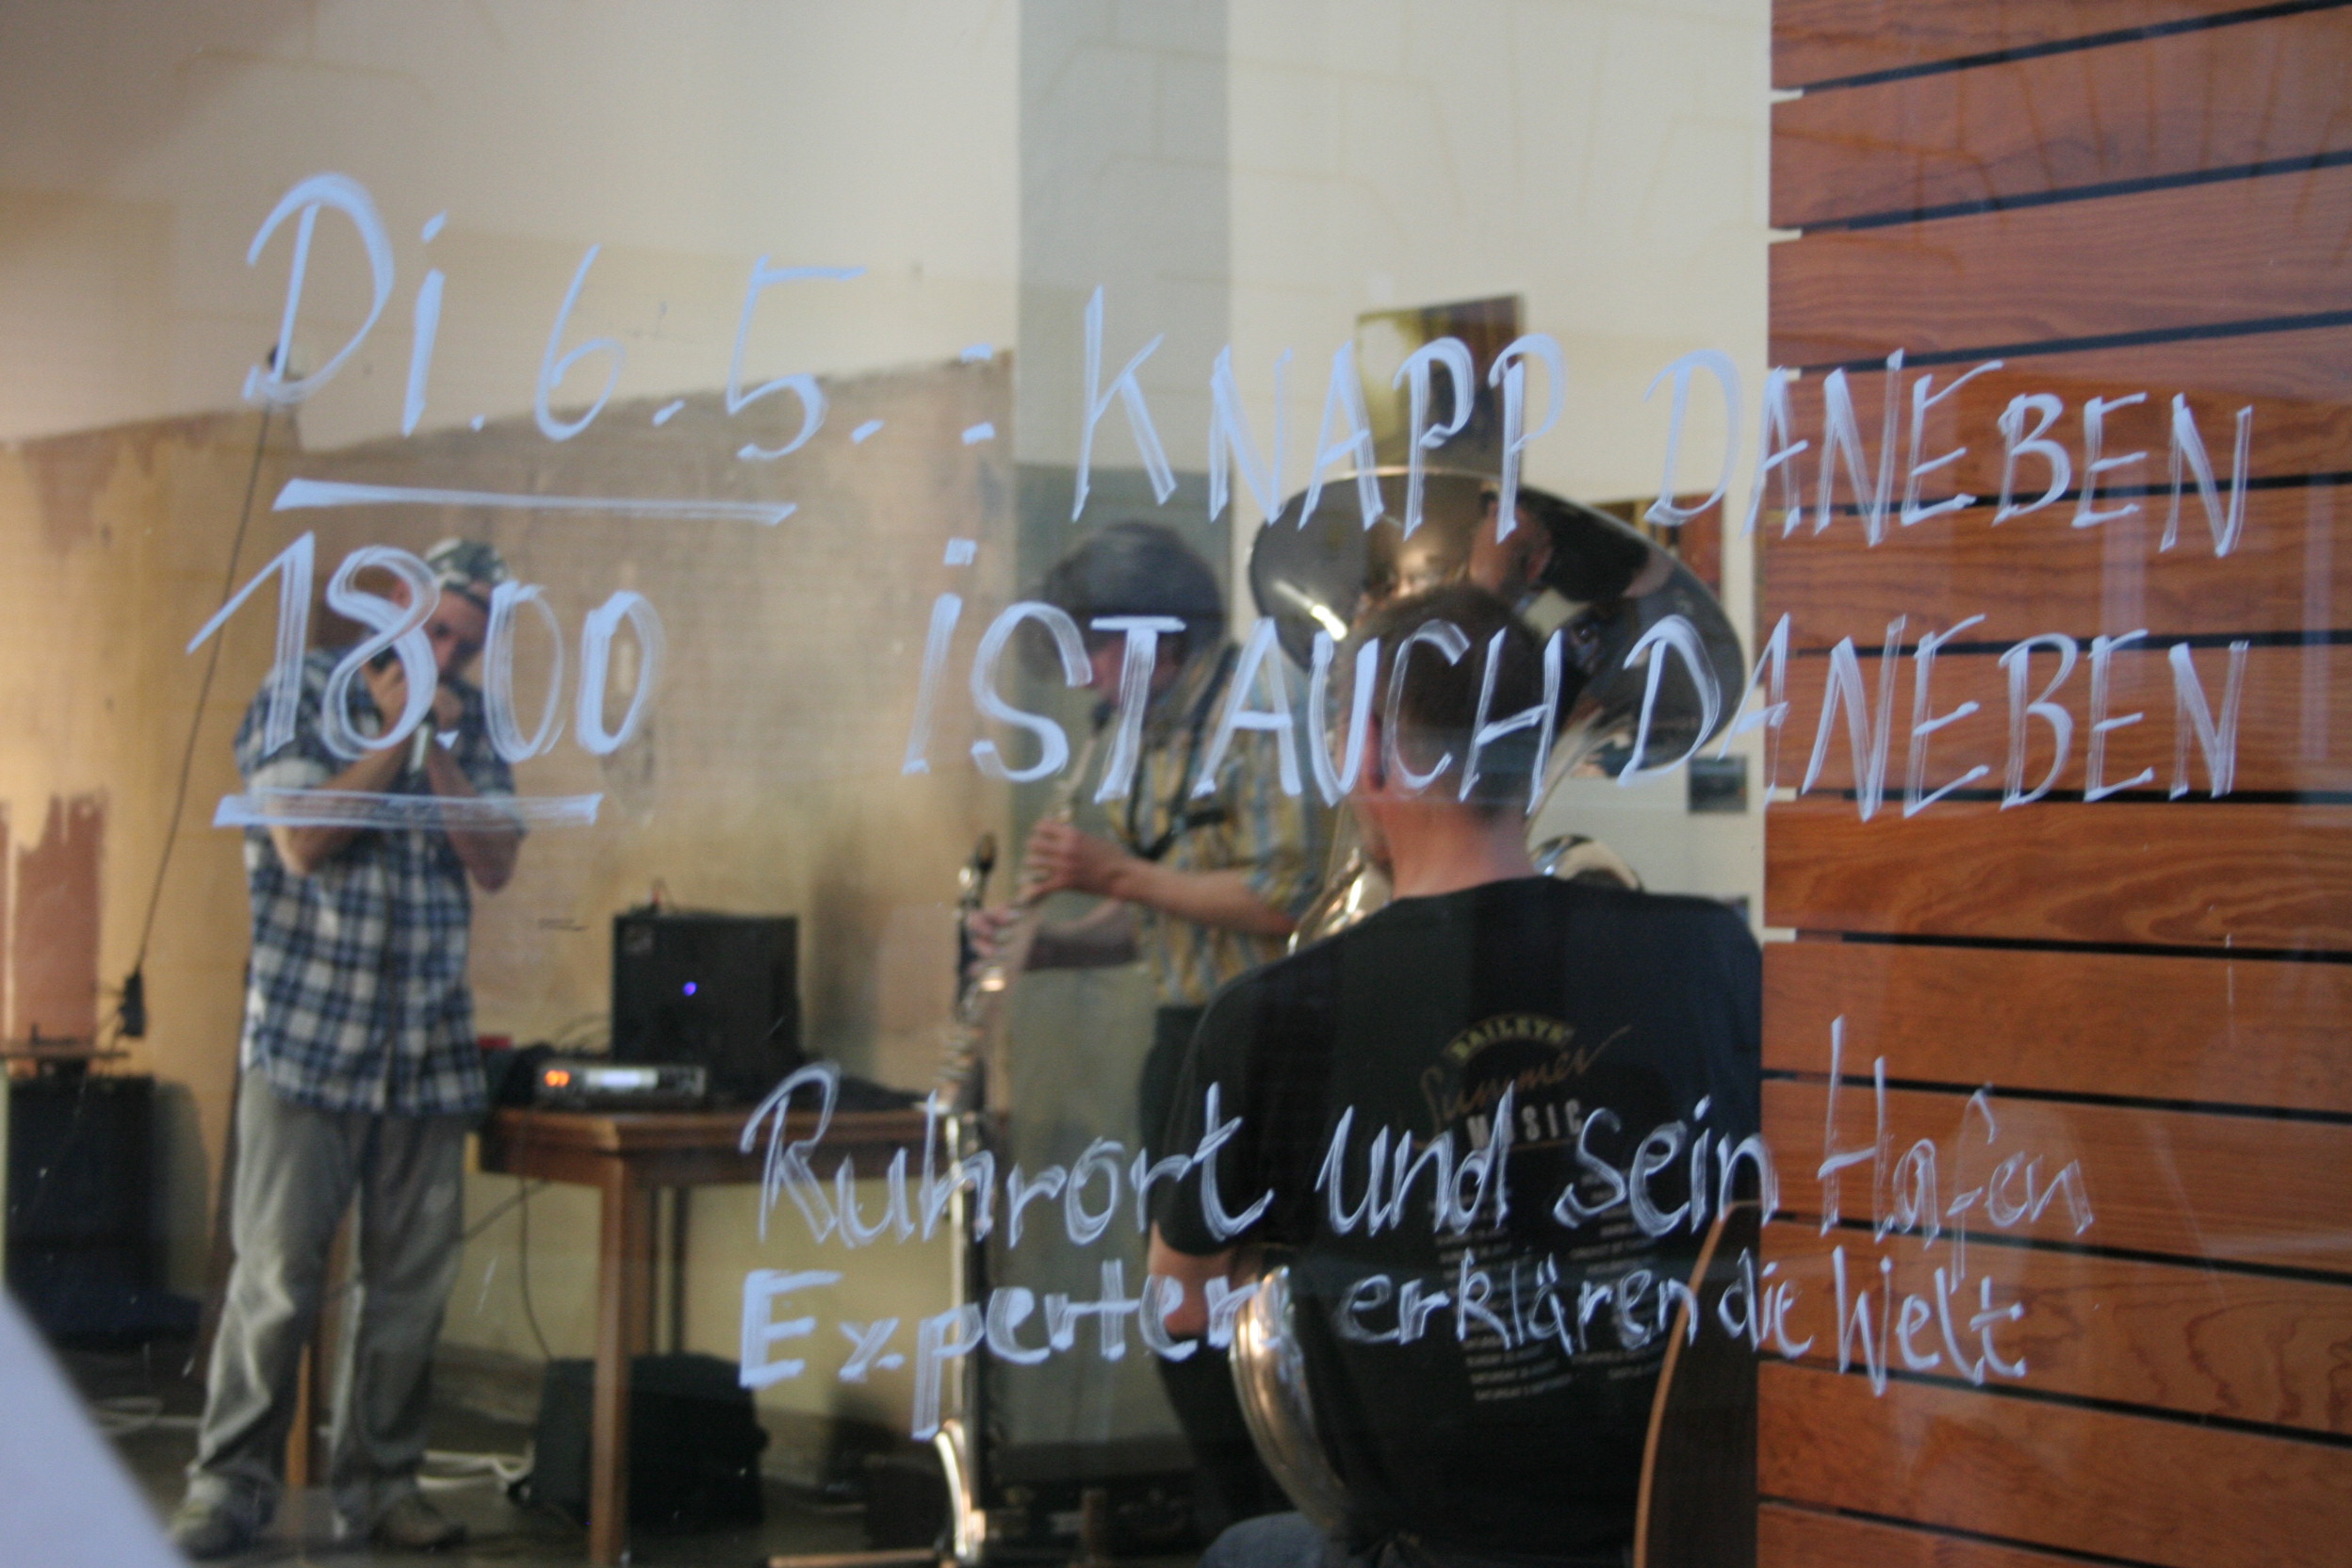 Di. 6.5. : KNAPP DANEBEN
18.00 iST AUCH DANEBEN
Ruhrort und sein Hafen
Experten erklären die Welt
BAILEYS
Summer
MUSIC